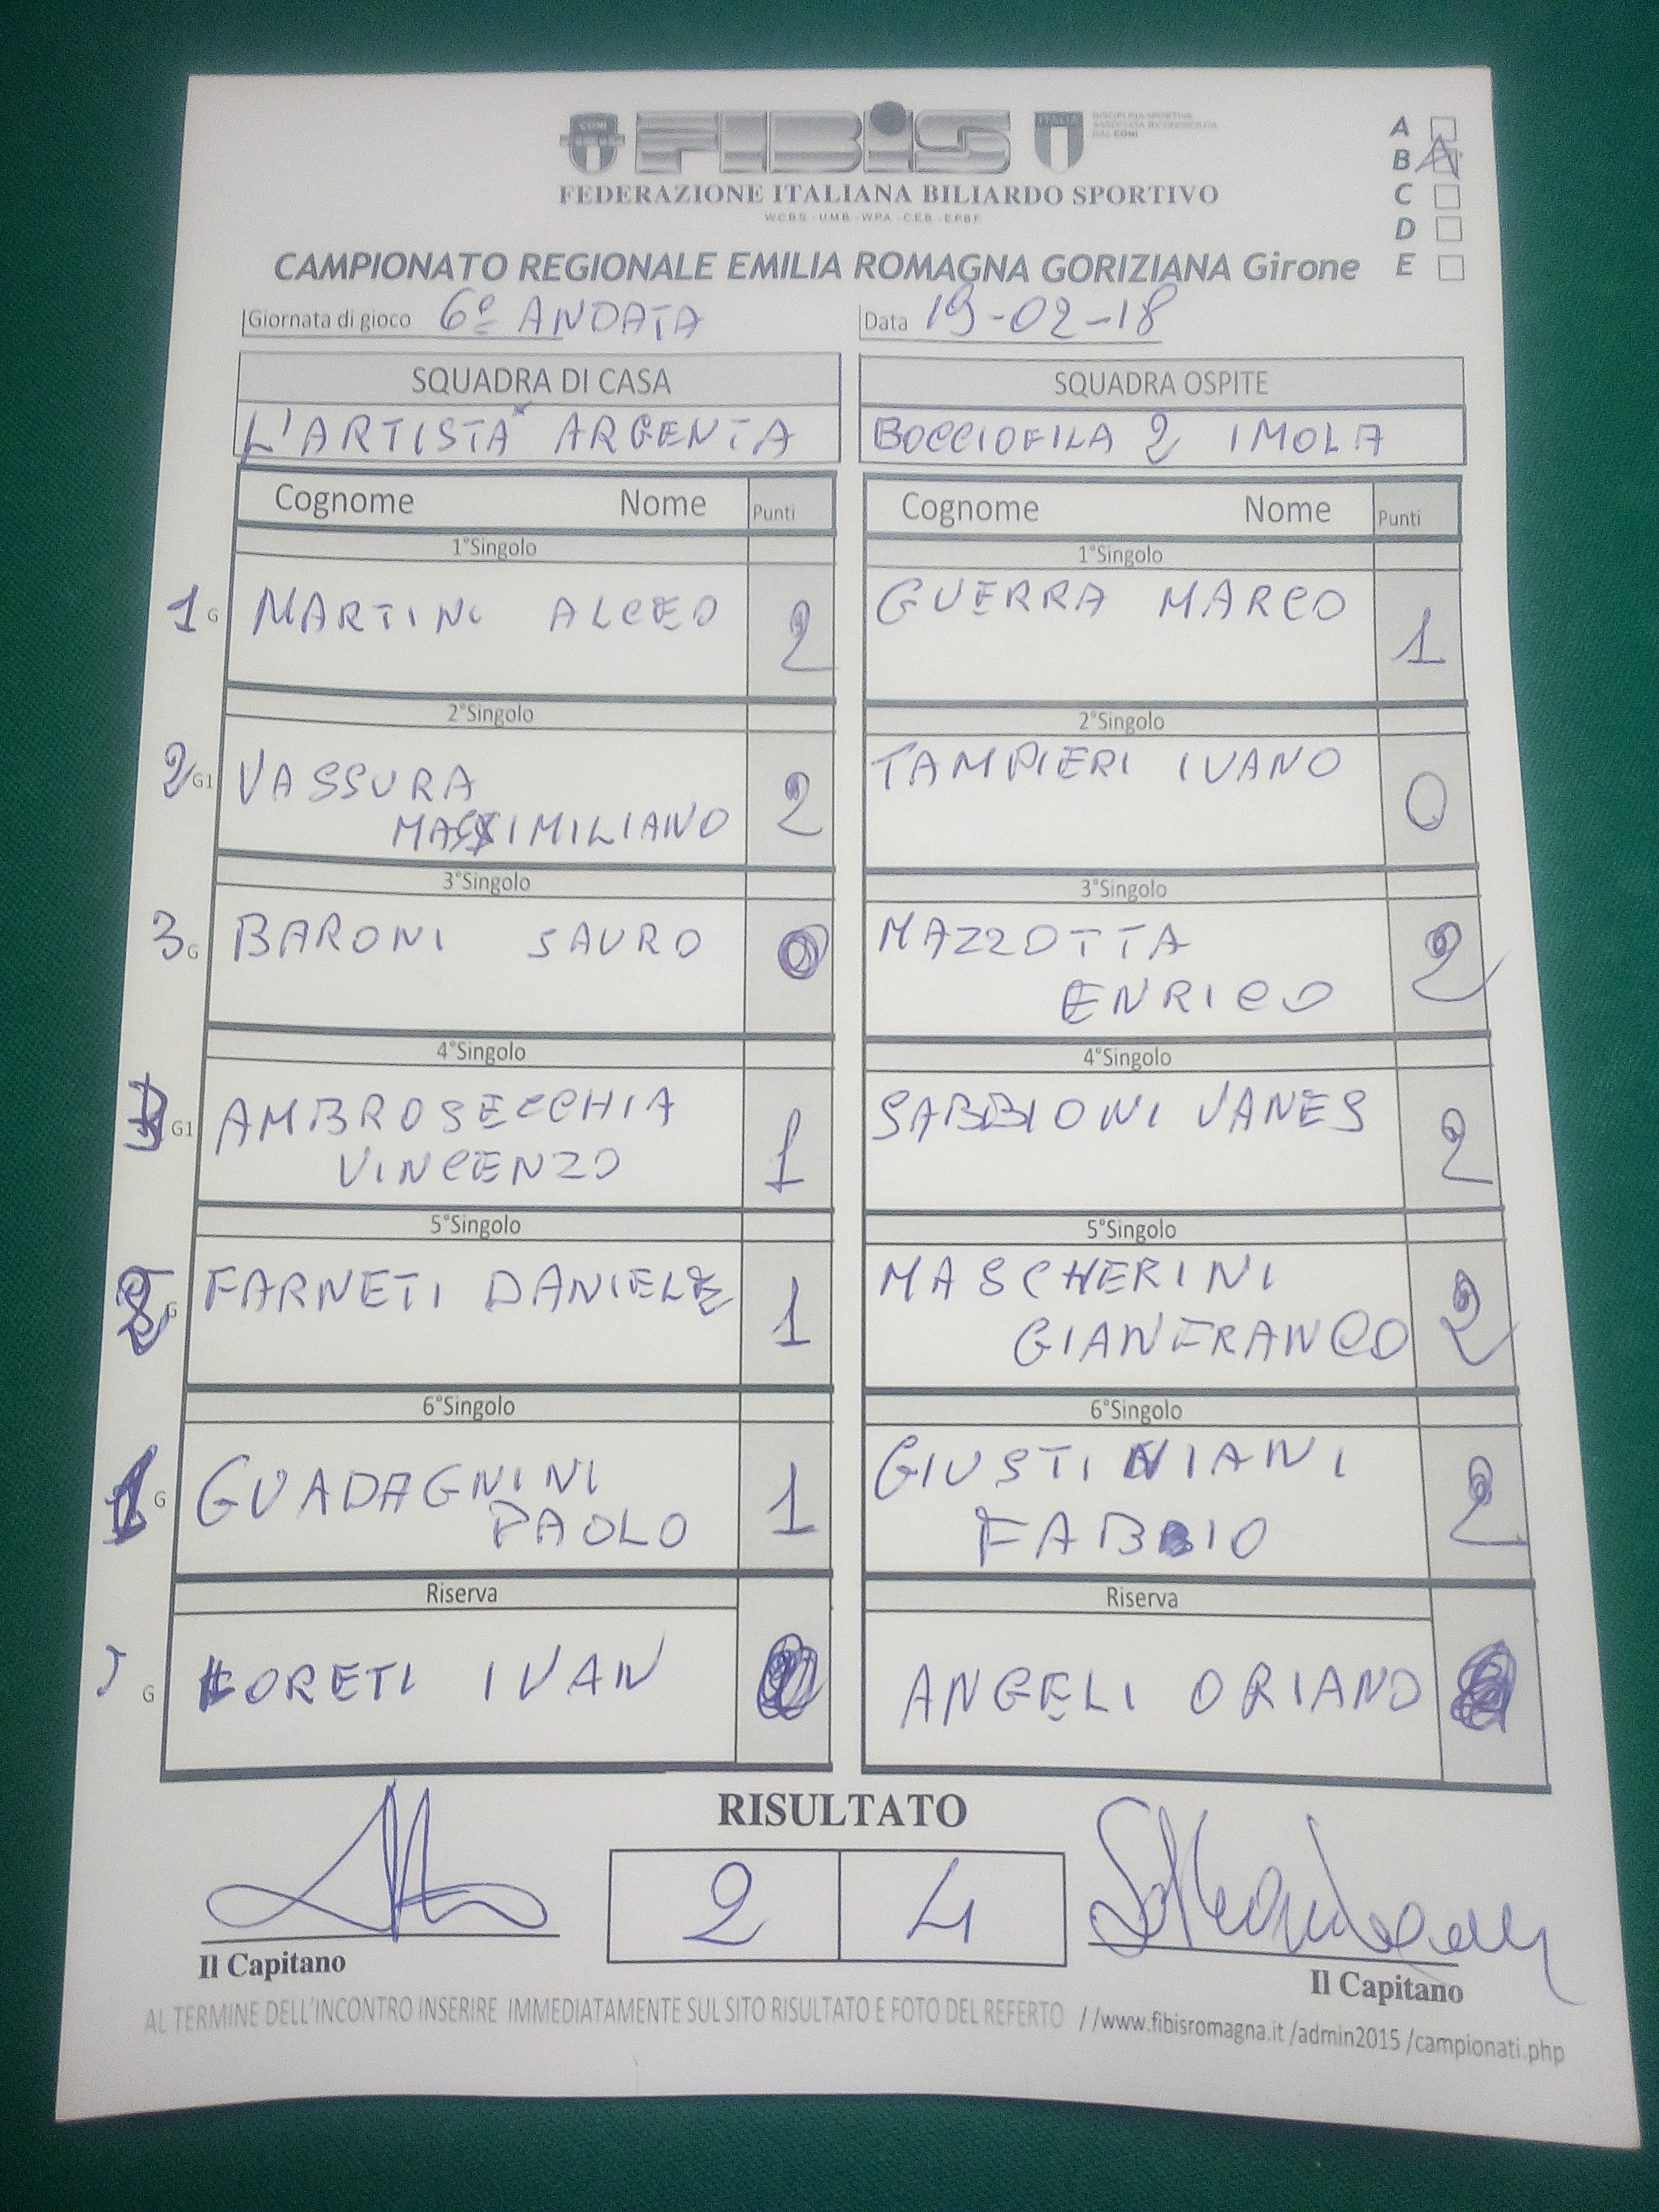 CONI FIBiS ITALIA DISCIPLINA SPORTIVA
ASSOCIATA RICONOSCIUTA
DAL CONI
FEDERAZIONE ITALIANA BILIARDO SPORTIVO
W.C.B.S. - U.M.B. - W.P.A. - C.E.B. - E.P.B.F.
A
B
C
D
E
CAMPIONATO REGIONALE EMILIA ROMAGNA GORIZIANA Girone
Giornata di gioco 6ª ANDATA Data 19-02-18
SQUADRA DI CASA SQUADRA OSPITE
L'ARTISTA ARGENTA BOCCIOFILA 2 IMOLA
Cognome Nome Punti Cognome Nome Punti
1°Singolo 1°Singolo
1 G MARTINI ALCEO 2 GUERRA MARCO 1
2°Singolo 2°Singolo
2 G1 VASSURA 2 TAMPIERI IVANO 0
MASSIMILIANO
3°Singolo 3°Singolo
3 G BARONI SAURO 0 MAZZOTTA 2
ENRICO
4°Singolo 4°Singolo
G1 AMBROSECCHIA 1 SABBIONI VANES 2
VINCENZO
5°Singolo 5°Singolo
G FARNETI DANIELE 1 MASCHERINI 2
GIANFRANCO
6°Singolo 6°Singolo
G GUADAGNINI 1 GIUSTINIANI 2
PAOLO FABBIO
Riserva Riserva
G LORETI IVAN ANGELI ORIANO
RISULTATO
2 4
Il Capitano Il Capitano
AL TERMINE DELL'INCONTRO INSERIRE IMMEDIATAMENTE SUL SITO RISULTATO E FOTO DEL REFERTO //www.fibisromagna.it /admin2015 /campionati.php